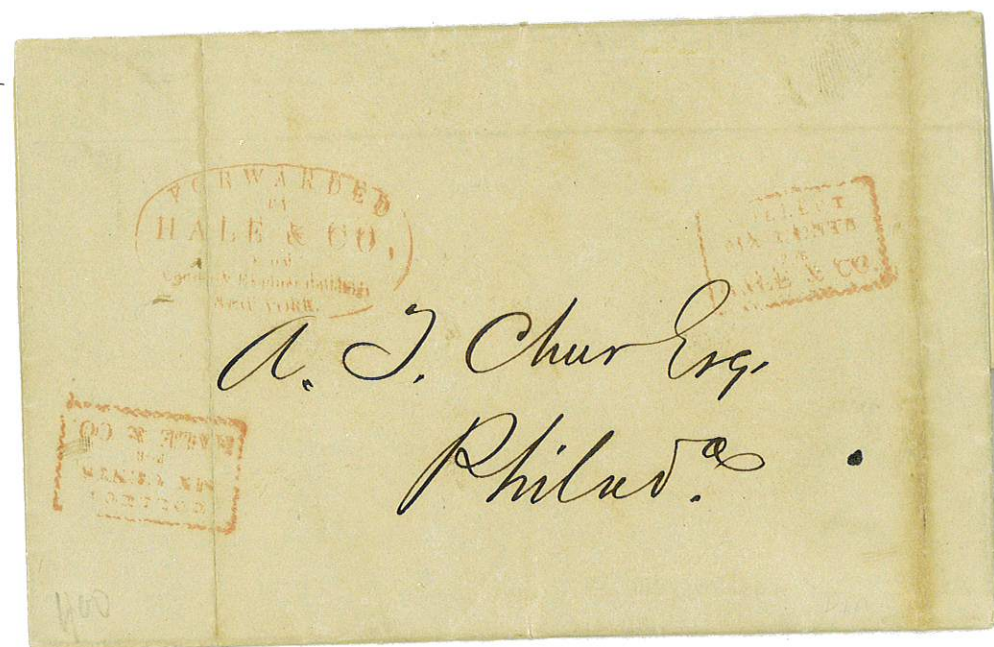 FORWARDED
BY
HALE & CO,
NEW YORK.
COLLECT
SIX CENTS
FOR
HALE & CO.
A. J. Chur Esq.
Philad.ª
COLLECT
SIX CENTS
FOR
HALE & CO
400